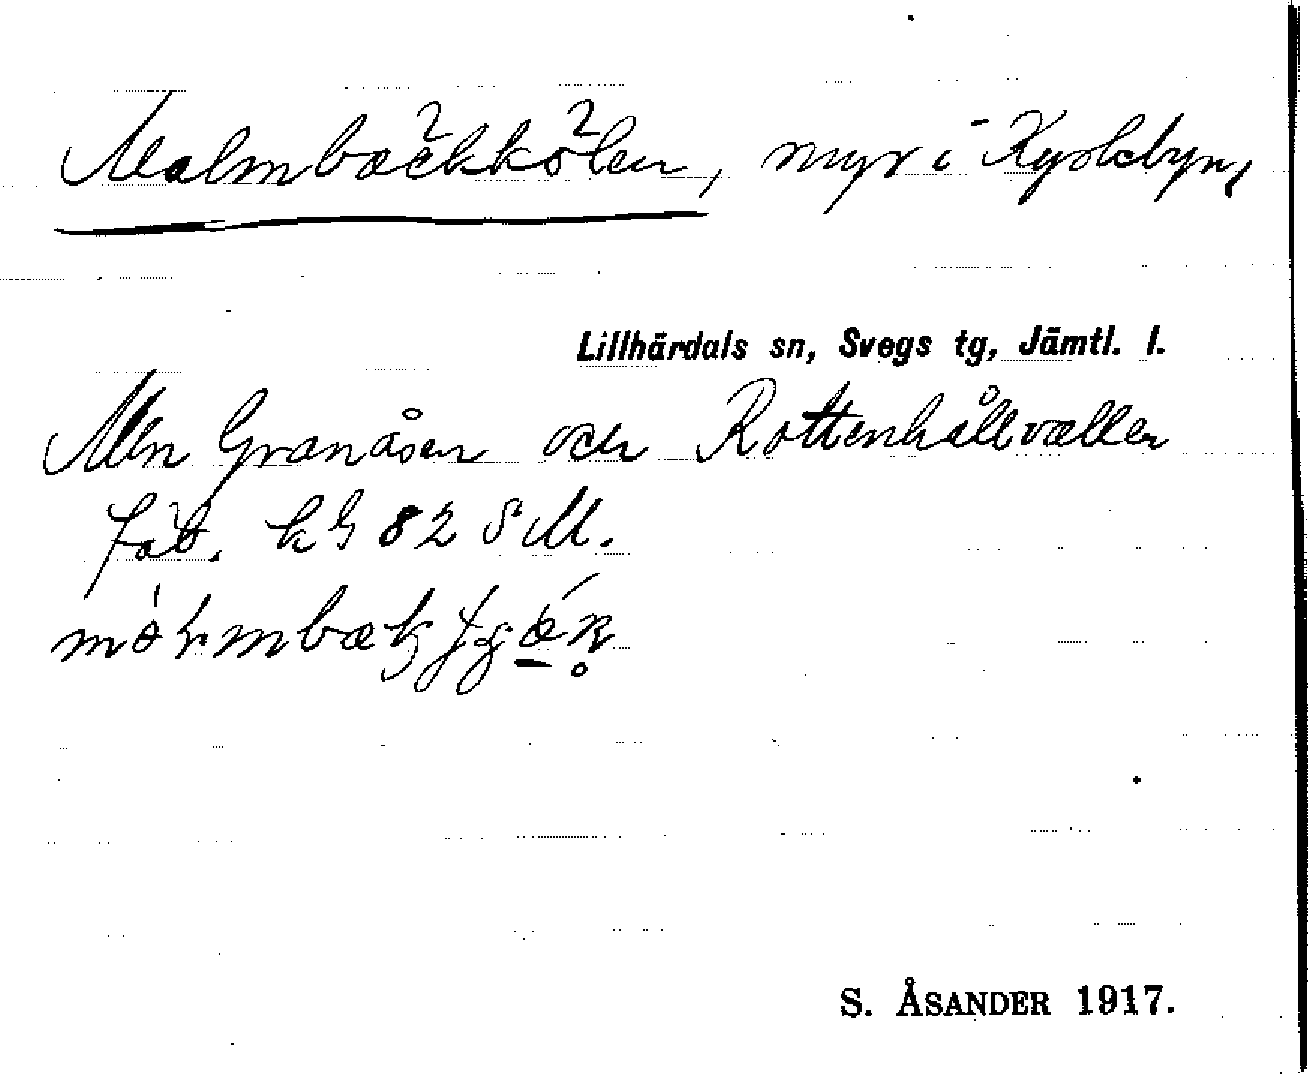 Malmbäckkölen, myr i Kyrkbyn,
Lillhärdals sn, Svegs tg, Jämtl. l.
Mln Granåsen och Rottenhållvallen
fäb. kg 82 S M.
S. ÅSANDER 1917.